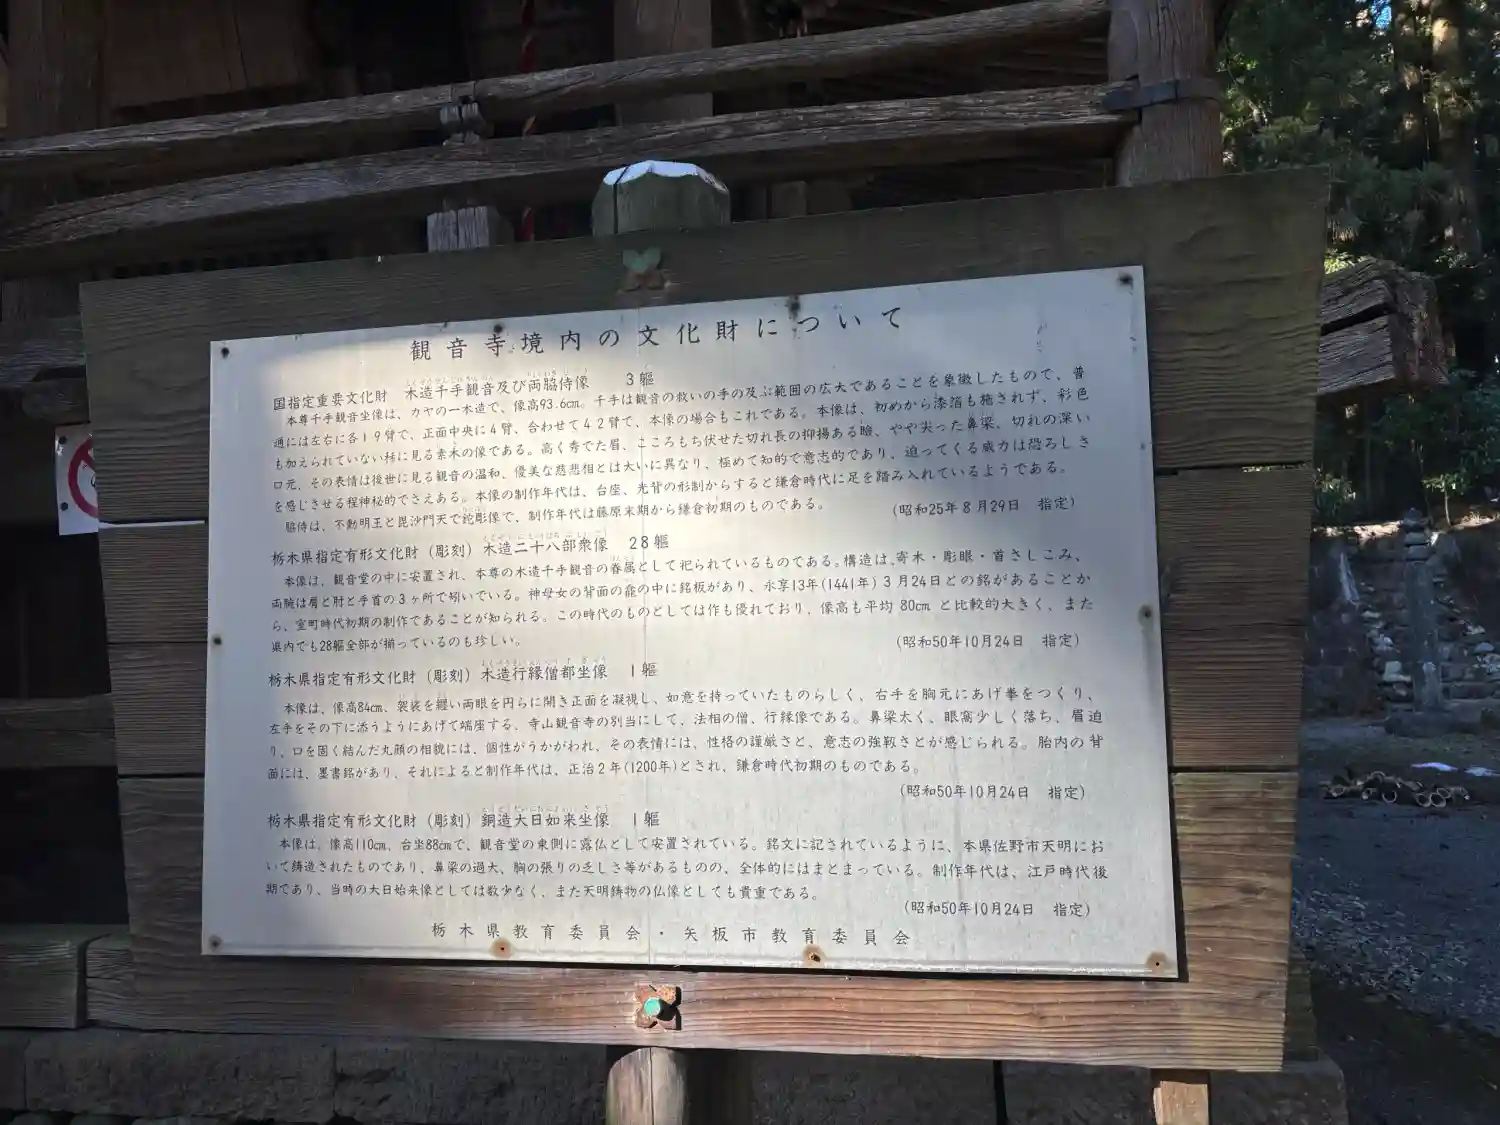 観音寺境内の文化財について
国指定重要文化財　木造千手観音及び両脇侍像　3軀
本尊千手観音坐像は、カヤの一木造で、像高93.6cm。千手は観音の救いの手の及ぶ範囲の広大であることを象徴したもので、普
通には左右に各19臂で、正面中央に4臂、合わせて42臂で、本像の場合もこれである。本像は、初めから漆箔も施されず、彩色
も加えられていない稀に見る素木の像である。高く秀でた眉、こころもち伏せた切れ長の抑揚ある瞼、やや尖った鼻梁、切れの深い
口元、その表情は後世に見る観音の温和、優美な慈悲相とは大いに異なり、極めて知的で意志的であり、迫ってくる威力は恐ろしさ
を感じさせる程神秘的でさえある。本像の制作年代は、台座、光背の形制からすると鎌倉時代に足を踏み入れているようである。
脇侍は、不動明王と毘沙門天で彫像で、制作年代は藤原末期から鎌倉初期のものである。
（昭和25年8月29日　指定）
栃木県指定有形文化財（彫刻）木造二十八部衆像　28軀
本像は、観音堂の中に安置され、本尊の木造千手観音の眷属として祀られているものである。構造は、寄木・彫眼・首さしこみ、
両腕は肩と肘と手首の3ヶ所で矧いでいる。神母女の背面の龕の中に銘板があり、永享13年(1441年)3月24日との銘があることか
ら、室町時代初期の制作であることが知られる。この時代のものとしては作も優れており、像高も平均80cmと比較的大きく、また
県内でも28軀全部が揃っているのも珍しい。
（昭和50年10月24日　指定）
栃木県指定有形文化財（彫刻）木造行縁僧都坐像　1軀
本像は、像高84cm、袈裟を纏い両眼を円らに開き正面を凝視し、如意を持っていたものらしく、右手を胸元にあげ拳をつくり、
左手をその下に添うようにあげて端座する、寺山観音寺の別当にして、法相の僧、行縁像である。鼻梁太く、眼窩少しく落ち、眉迫
り、口を固く結んだ丸顔の相貌には、個性がうかがわれ、その表情には、性格の謹厳さと、意志の強靱さとが感じられる。胎内の背
面には、墨書銘があり、それによると制作年代は、正治2年(1200年)とされ、鎌倉時代初期のものである。
（昭和50年10月24日　指定）
栃木県指定有形文化財（彫刻）銅造大日如来坐像　1軀
本像は、像高110cm、台坐88cmで、観音堂の東側に露仏として安置されている。銘文に記されているように、本県佐野市天明にお
いて鋳造されたものであり、鼻梁の過大、胸の張りの乏しさ等があるものの、全体的にはまとまっている。制作年代は、江戸時代後
期であり、当時の大日如来像としては数少なく、また天明鋳物の仏像としても貴重である。
（昭和50年10月24日　指定）
栃木県教育委員会・矢板市教育委員会